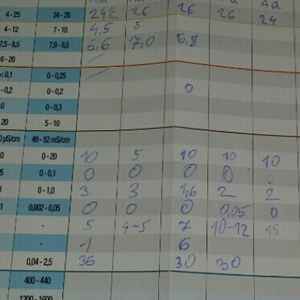 4-25 24-28 242 26 26 26 24
4-12 7-10 4,5 5
7,5-8,5 7,9-8,5 6.6 7,0 6,8
6-20
< 0,1 0-0,25
- 0,2 0-0,2 0
0-0,3
20 5-10
µS/cm 49-52 mS/cm
0-20 10 5 10 10 10
0-0,1 0 0 0 0 0
0-1,0 3 3 1,6 2 2
0,002-0,05 0 0 0 0,05 0
- 5 4-5 7 10-12 15
- 1 6
0,04-2,5 36 30 30
400-440
1200-1600